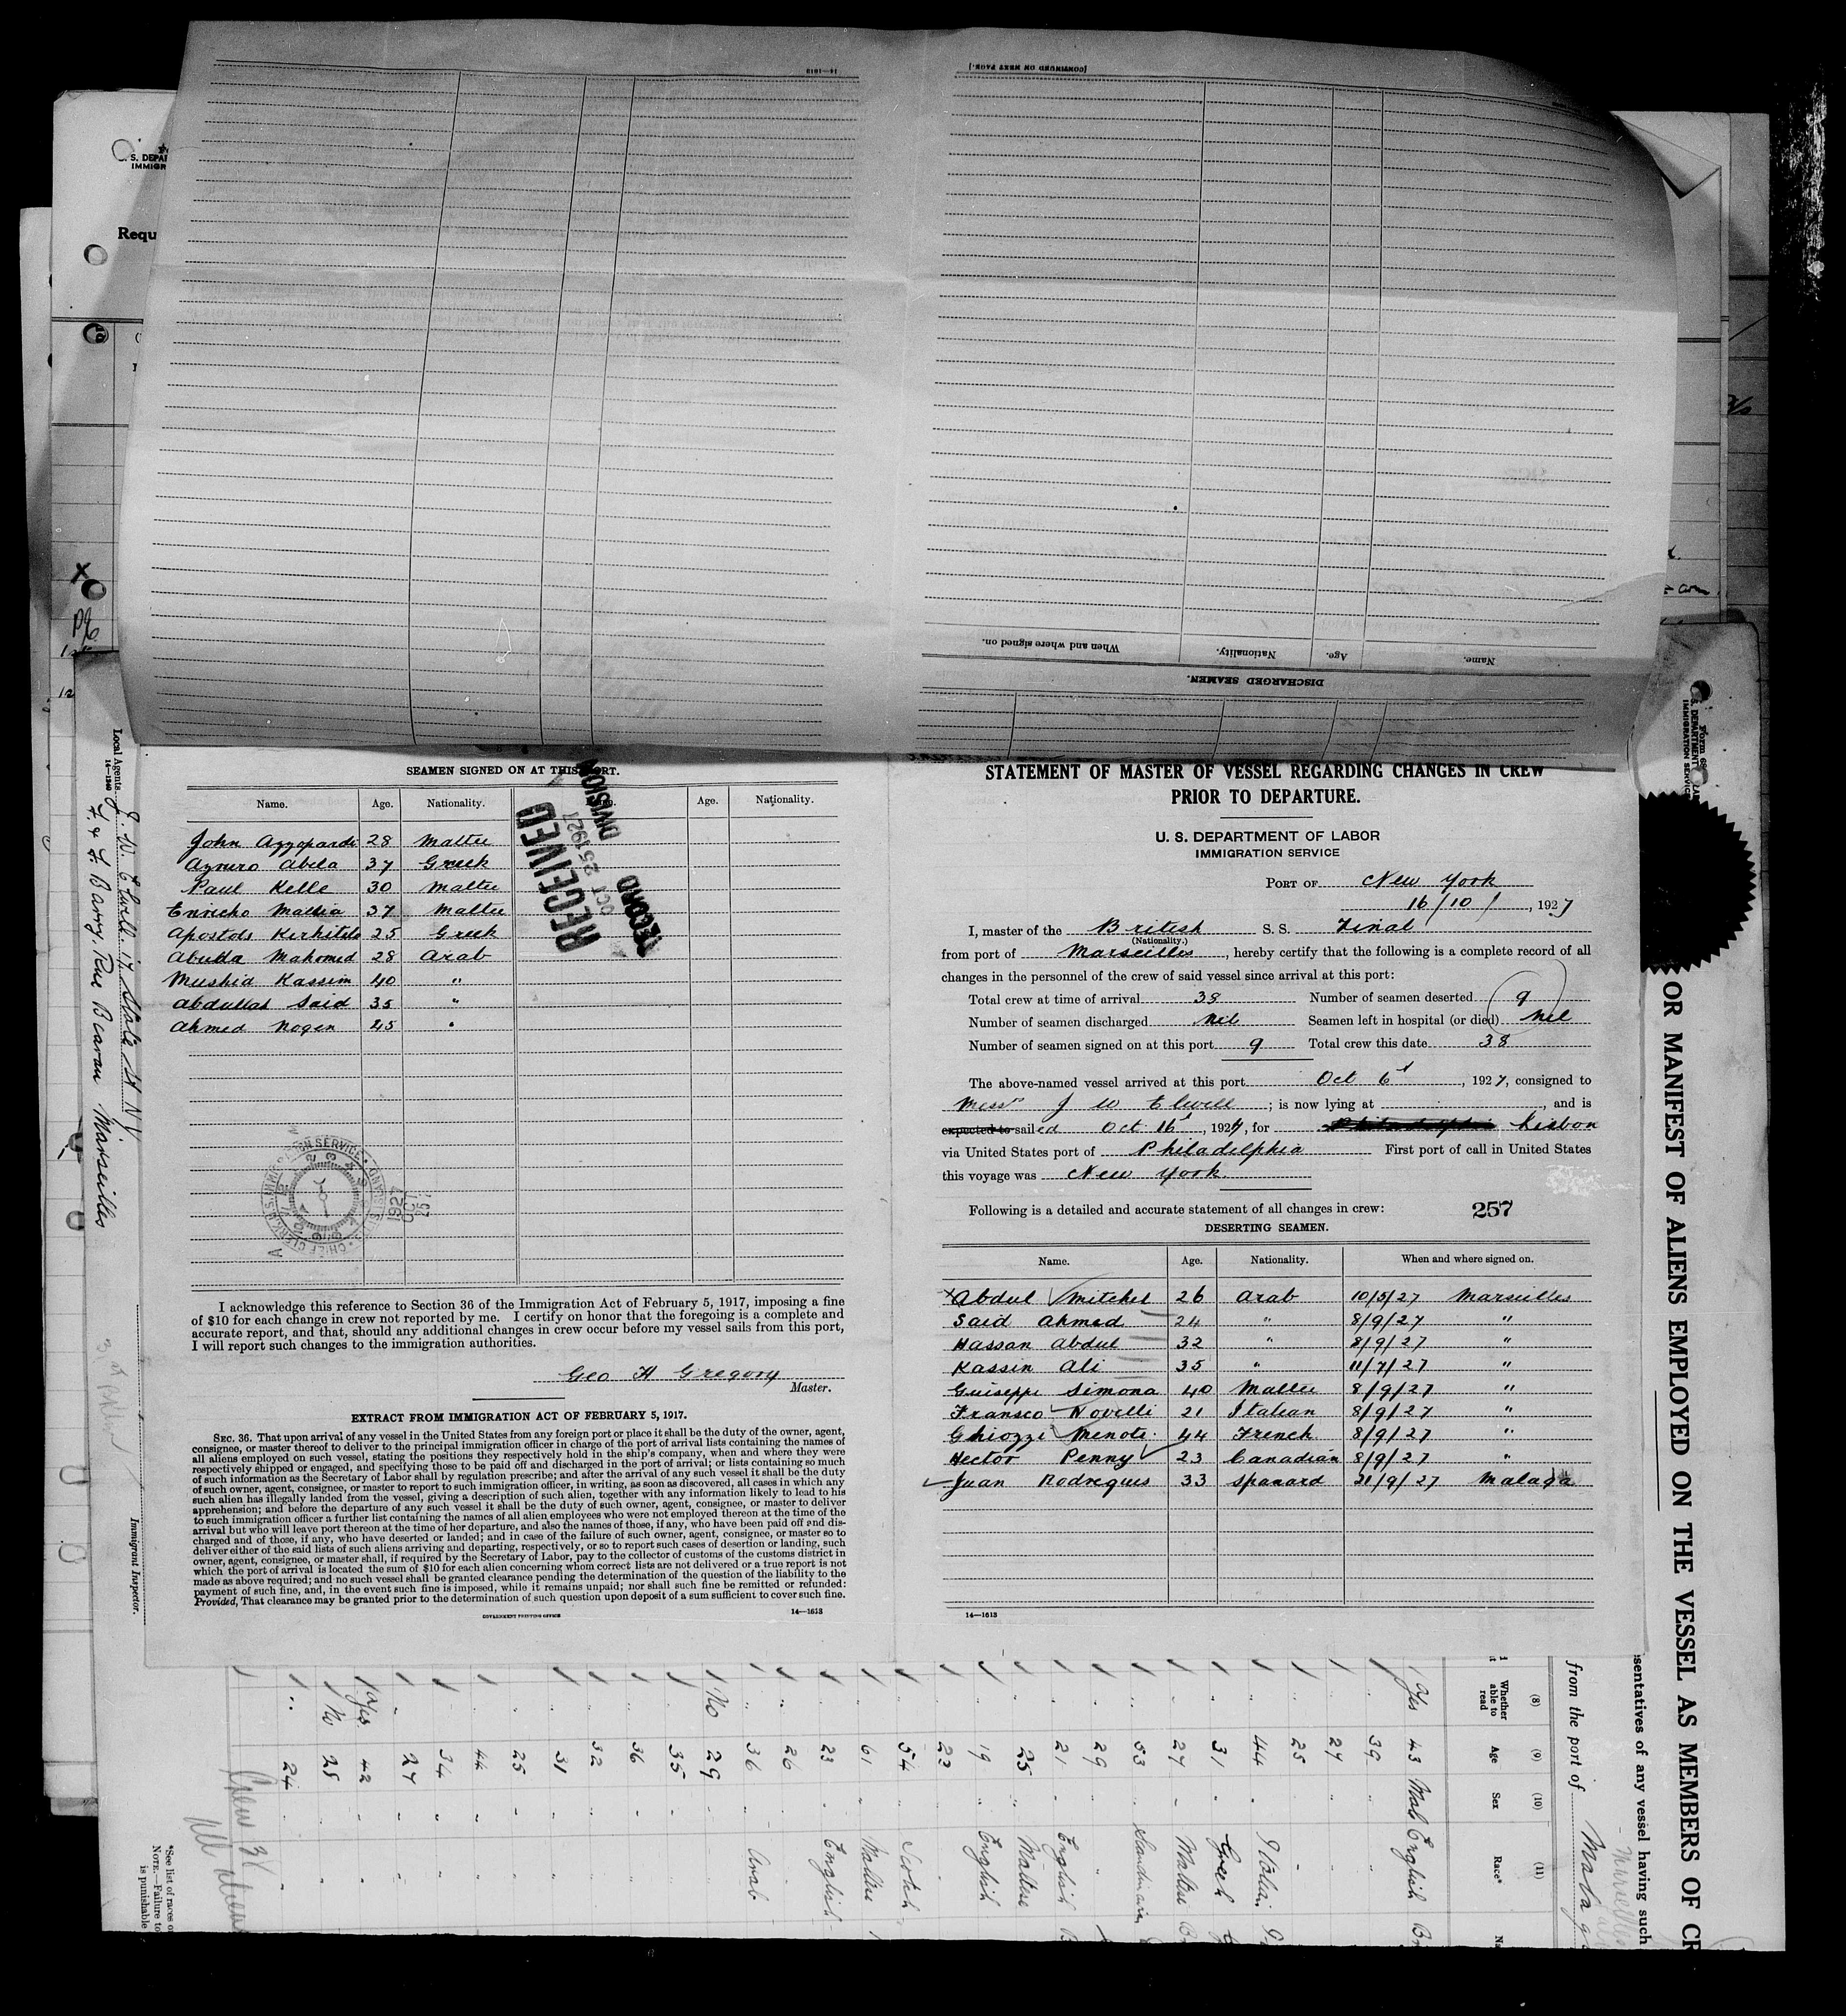 SEAMEN SIGNED ON AT THIS PORT.
Name. Age. Nationality. Name. Age. Nationality.
John Azzopardi 28 Maltee
Abela 37 Greek
Paul Kelle 30 Maltee
Enricho Mallia 37 Maltee
Apostols 25 Greek
Abulla Mahomed 28 Arab
Mushid Kassim 40 "
Abdullah Said 35 "
Ahmed Nogen 45 "
RECEIVED
OCT 25 1927
RECORD DIVISION
I acknowledge this reference to Section 36 of the Immigration Act of February 5, 1917, imposing a fine
of $10 for each change in crew not reported by me. I certify on honor that the foregoing is a complete and
accurate report, and that, should any additional changes in crew occur before my vessel sails from this port,
I will report such changes to the immigration authorities.
Geo H Gregory
Master.
EXTRACT FROM IMMIGRATION ACT OF FEBRUARY 5, 1917.
SEC. 36. That upon arrival of any vessel in the United States from any foreign port or place it shall be the duty of the owner, agent,
consignee, or master thereof to deliver to the principal immigration officer in charge of the port of arrival lists containing the names of
all aliens employed on such vessel, stating the positions they respectively hold in the ship's company, when and where they were
respectively shipped or engaged, and specifying those to be paid off and discharged in the port of arrival; or lists containing so much
of such information as the Secretary of Labor shall by regulation prescribe; and after the arrival of any such vessel it shall be the duty
of such owner, agent, consignee, or master to report to such immigration officer, in writing, as soon as discovered, all cases in which any
such alien has illegally landed from the vessel, giving a description of such alien, together with any information likely to lead to his
apprehension; and before the departure of any such vessel it shall be the duty of such owner, agent, consignee, or master to deliver
to such immigration officer a further list containing the names of all alien employees who were not employed thereon at the time of the
arrival but who will leave port thereon at the time of her departure, and also the names of those, if any, who have been paid off and dis-
charged and of those, if any, who have deserted or landed; and in case of the failure of such owner, agent, consignee, or master so to
deliver either of the said lists of such aliens arriving and departing, respectively, or so to report such cases of desertion or landing, such
owner, agent, consignee, or master shall, if required by the Secretary of Labor, pay to the collector of customs of the customs district in
which the port of arrival is located the sum of $10 for each alien concerning whom correct lists are not delivered or a true report is not
made as above required; and no such vessel shall be granted clearance pending the determination of the question of the liability to the
payment of such fine, and, in the event such fine is imposed, while it remains unpaid; nor shall such fine be remitted or refunded:
Provided, That clearance may be granted prior to the determination of such question upon deposit of a sum sufficient to cover such fine.
GOVERNMENT PRINTING OFFICE 14—1613
STATEMENT OF MASTER OF VESSEL REGARDING CHANGES IN CREW
PRIOR TO DEPARTURE.
U. S. DEPARTMENT OF LABOR
IMMIGRATION SERVICE
PORT OF New York
16/10/, 1927
I, master of the British S. S. Final
(Nationality.)
from port of Marseilles, hereby certify that the following is a complete record of all
changes in the personnel of the crew of said vessel since arrival at this port:
Total crew at time of arrival 38 Number of seamen deserted 9
Number of seamen discharged Nil Seamen left in hospital (or died) Nil
Number of seamen signed on at this port 9 Total crew this date 38
The above-named vessel arrived at this port Oct 6, 1927, consigned to
Messrs J W Elwell; is now lying at , and is
expected to sailed Oct 16, 1927, for Philadelphia Lisbon
via United States port of Philadelphia First port of call in United States
this voyage was New York
Following is a detailed and accurate statement of all changes in crew: 257
DESERTING SEAMEN.
Name. Age. Nationality. When and where signed on.
Abdul Mitchel 26 Arab 10/5/27 Marseilles
Said Ahmed 24 " 8/9/27 "
Hassan Abdul 32 " 8/9/27 "
Kassin Ali 35 " 11/7/27 "
Guiseppi Simona 40 Maltee 8/9/27 "
Fransco Novelli 21 Italian 8/9/27 "
Ghiozzi Menoti 44 French 8/9/27 "
Hector Penny 23 Canadian 8/9/27 "
Juan Rodreques 33 Spanard 21/9/27 Malaga
14—1613
DISCHARGED SEAMEN.
Name. Age. Nationality. When and where signed on.
[CONTINUED ON NEXT PAGE.]
14—1613
Requ
Local Agents J. W. Elwell. 17 State St NY
14—1240
F & F Barry. Rue Beavan Marseilles
Immigrant Inspector.
OR MANIFEST OF ALIENS EMPLOYED ON THE VESSEL AS MEMBERS OF CR
sentatives of any vessel having such
from the port of Malaga
(8) (9) (10) (11)
Whether able to read Age Sex Race*
Yes 43 Male English
39
27
25
44 Italian
31 Greek
27 Maltese
53
29
21 English
25 Maltese
19 English
23
54 Scotch
61 Maltese
23 English
26
36 Arab
No 29
35
36
32
31
25
44
34
27
Yes 42
No 28
24
Crew 38
All aliens
*See list of races o
NOTE.—Failure to
is punishable